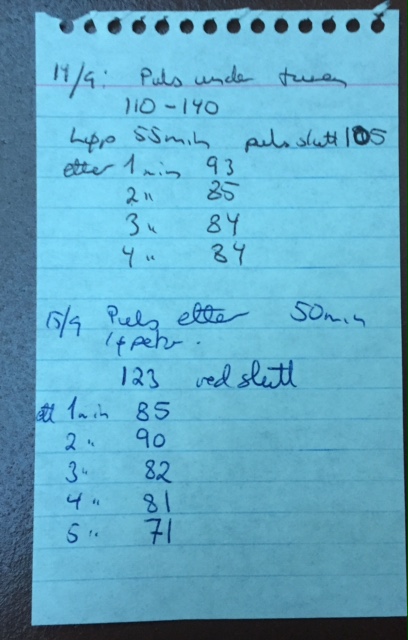 14/9: Puls under turen
110-140
løp 55min puls slutt 105
etter 1 min 93
2 " 85
3 " 84
4 " 84
15/9 Puls etter 50min
123 ved slutt
ett 1min 85
2 " 90
3 " 82
4 " 81
5 " 71